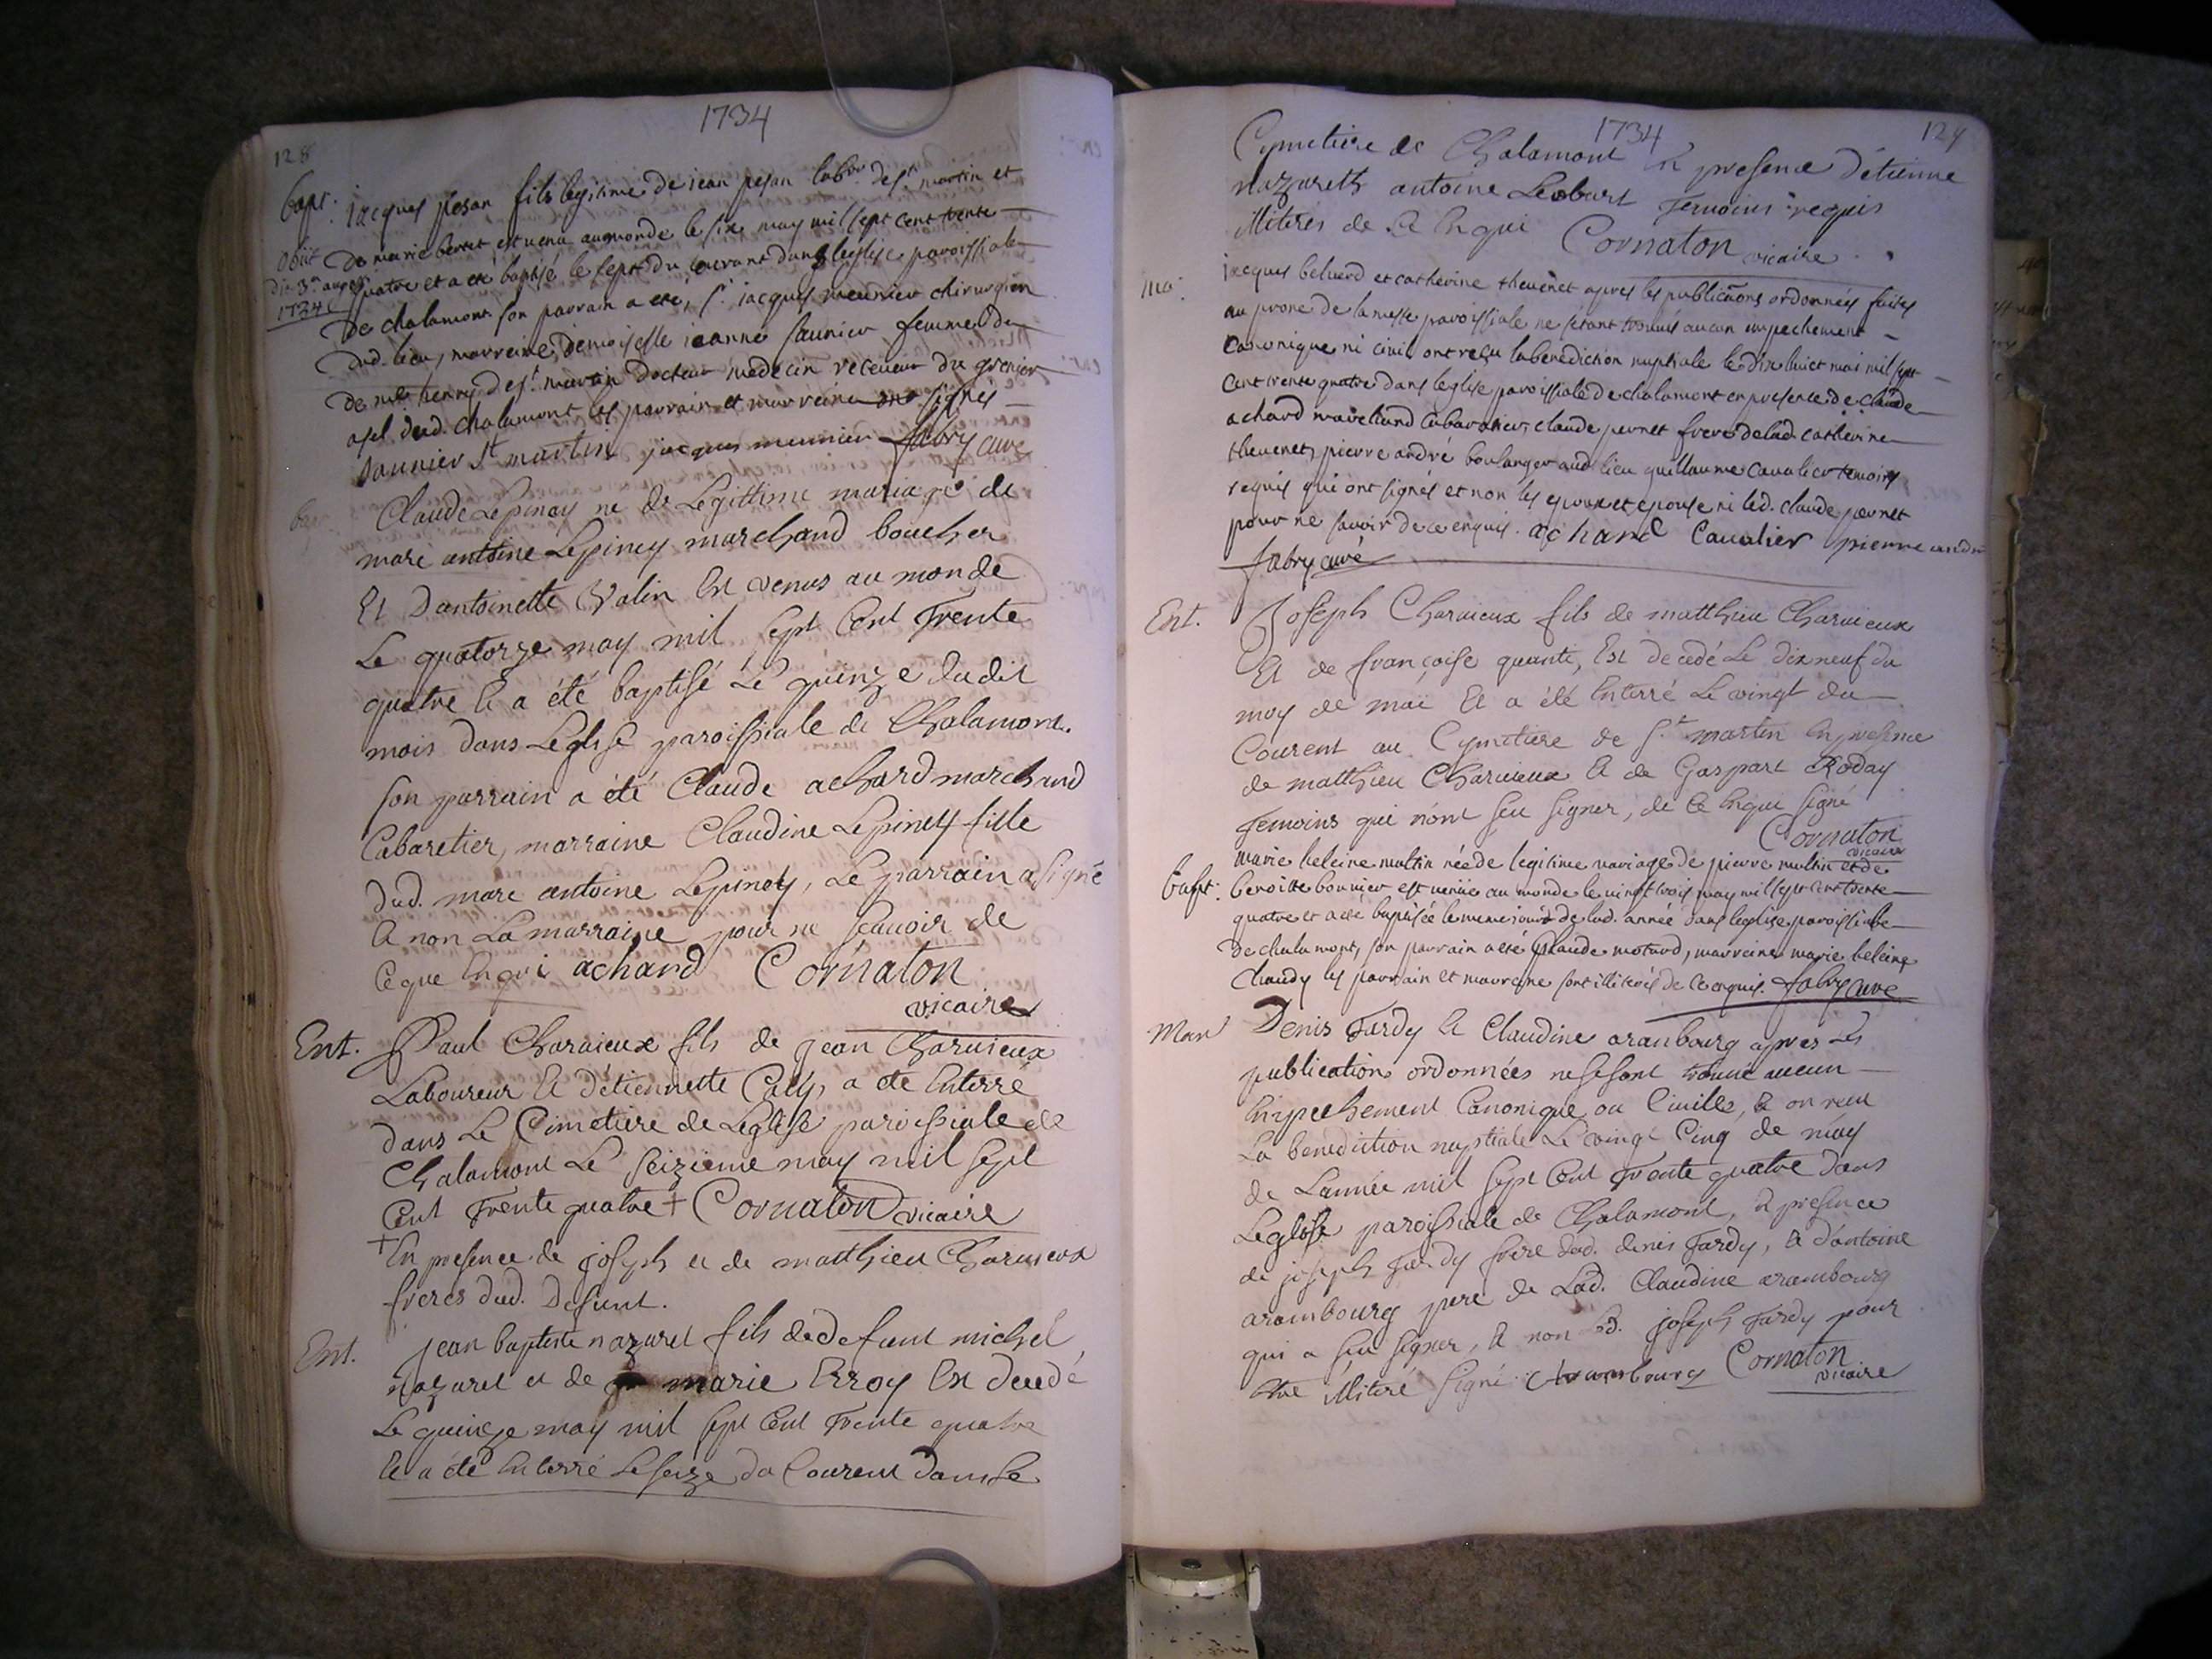 1734
128
Bapt. jacques pesan fils legitime de jean pesan labr. de st. martin et
obiit de marie berret est venu au monde le six may mil sept cent trente
die 3a augusti quatre et a eté baptisé le sept du courant dans leglise paroissiale
1734 de chalamont son parrain a eté, sr. jacques meunier chirurgien
dud. lieu, marreine, demoiselle jeanne saunier femme de
de mre. henry de st. martin docteur medecin receveur du grenier
a sel dud. chalamont les parrain et marreine ont signés
saunier st martin jacques meunier fabry curé
bap. Claude Lepinay ne de Legittime mariage de
marc antoine Lepiney marchand boucher
Et Dantoinette Valin Est venus au monde
Le quatorze may mil sept Cent Trente
quatre Et a été baptisé Le quinze dudit
mois dans Leglise paroissiale de Chalamont.
son parrain a été Claude achard marchand
Cabaretier, marraine Claudine Lepiney fille
dud. marc antoine Lepiney, Le parrain a signé
Et non La marraine pour ne scavoir de
Ceque Enqui achard Cornaton
vicaire
Ent. Paul Charvieux fils de jean Charvieux
Laboureur Et d'étiennette Caty, a ete Enterré
dans Le Cimetiere de Leglise paroissiale de
Chalamont Le seizieme may mil sept
Cent Trente quatre + Cornaton vicaire
+ En presence de joseph et de matthieu Charvieux
freres dud. Defunt.
Ent. jean baptiste nazaret fils de defunt michel
nazaret et de marie Erroy Est decedé
Le quinze may mil sept Cent Trente quatre
Et a été Enterré Le seize du Courent dans Le
1734
129
Cymetiere de Chalamont En presence d'étienne
nazareth antoine Leobart Temoins requis
illiteres de Ce Enqui Cornaton vicaire
ma. jacques beluerd et catherine thevenet apres les publications ordonnées faites
au prone de la messe paroissiale ne setant trouvés aucun impechement
canonique ni civil ont reçu la benediction nuptiale le dix huict mai mil sept
cent trente quatre dans leglise paroissiale de chalamont en presence de claude
achard marchand cabaratier, claude pernet frere de lad. catherine
thevenet, pierre andré boulanger aud. lieu guillaume cavalier temoins
requis qui ont signés et non les epoux et epouse ni led. claude pernet
pour ne savoir de ce enquis. achard Cavalier pierre andré
fabry curé
Ent. Joseph Charvieux fils de matthieu Charvieux
Et de françoise quante, Est decedé Le dix neuf du
moy de mai Et a été Enterré Le vingt du
Courent au Cymetiere de st. martin En presence
de matthieu Charvieux Et de Gaspart Roday
Temoins qui n'ont sçu signer, de Ce Enqui signé
Cornaton
vicaire
marie heleine multin née de legitime mariage de pierre multin et de
bapt. benoitte bouvier est venüe au monde le vingt trois may mil sept cent trente
quatre et a eté baptisée le meme jour de lad. année dans leglise paroissiale
de chalamont, son parrain a eté Claude motard, marreine marie heleine
Chaudy les parrain et marreine sont illiterés de ce enquis. fabry curé
Mar Denis Tardy Et Claudine arambourg apres Les
publications ordonnées ne sesant trouvé aucun
Empechement Canonique ou Civille, Et on recu
La benediction nuptiale Le vingt Cinq de may
de Lannée mil sept Cent Trente quatre dans
Leglise paroissiale de Chalamont, En presence
de joseph Tardy frere dud. denis Tardy, Et d'antoine
arambourg pere de Lad. Claudine arambourg
qui a sçu signer, Et non Led. joseph Tardy pour
etre illiteré signé Arambourg Cornaton
vicaire